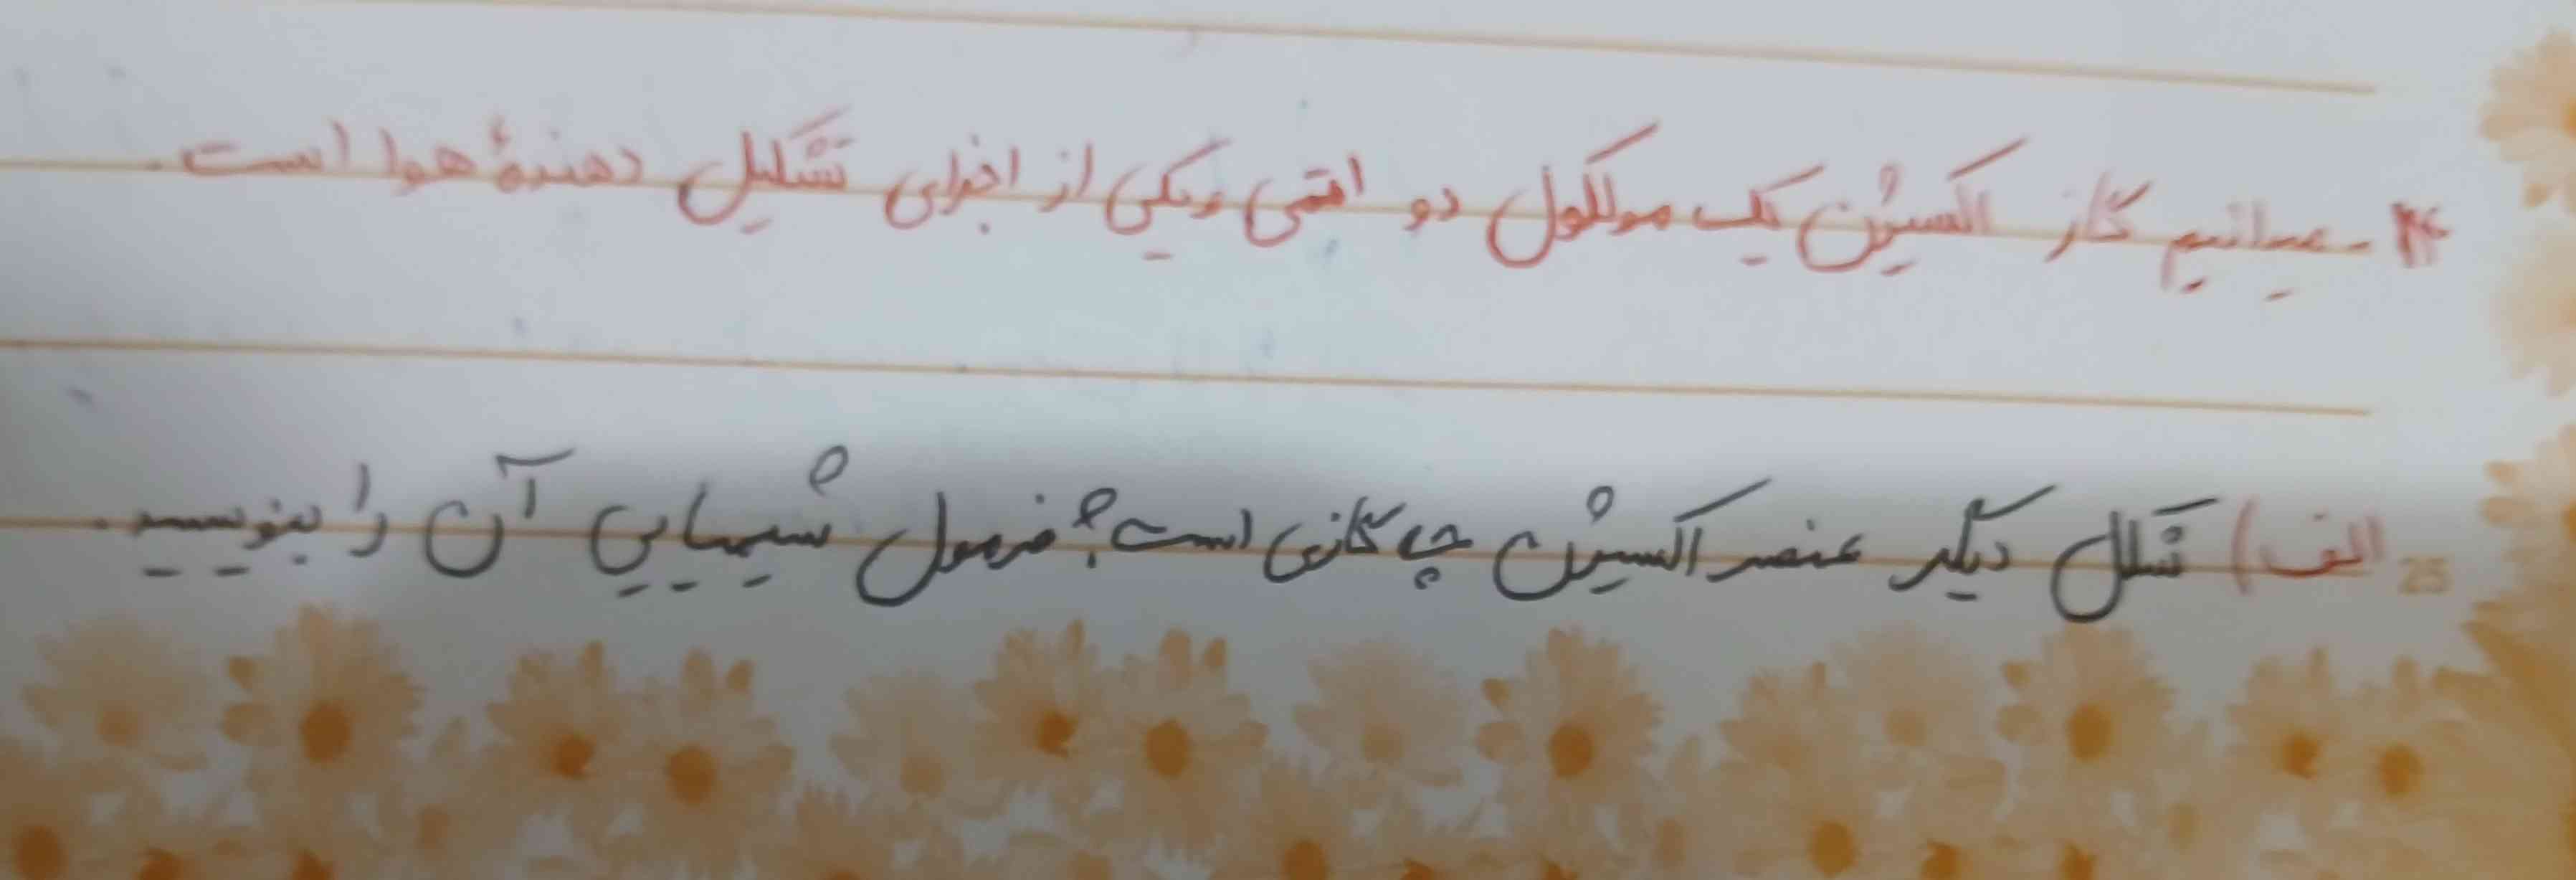 ۴- میدانیم گاز اکسیژن یک مولکول دو اتمی و یکی از اجزای تشکیل دهندهٔ هوا است.
الف) شکل دیگر عنصر اکسیژن چه گازی است؟ فرمول شیمیایی آن را بنویسید.
25